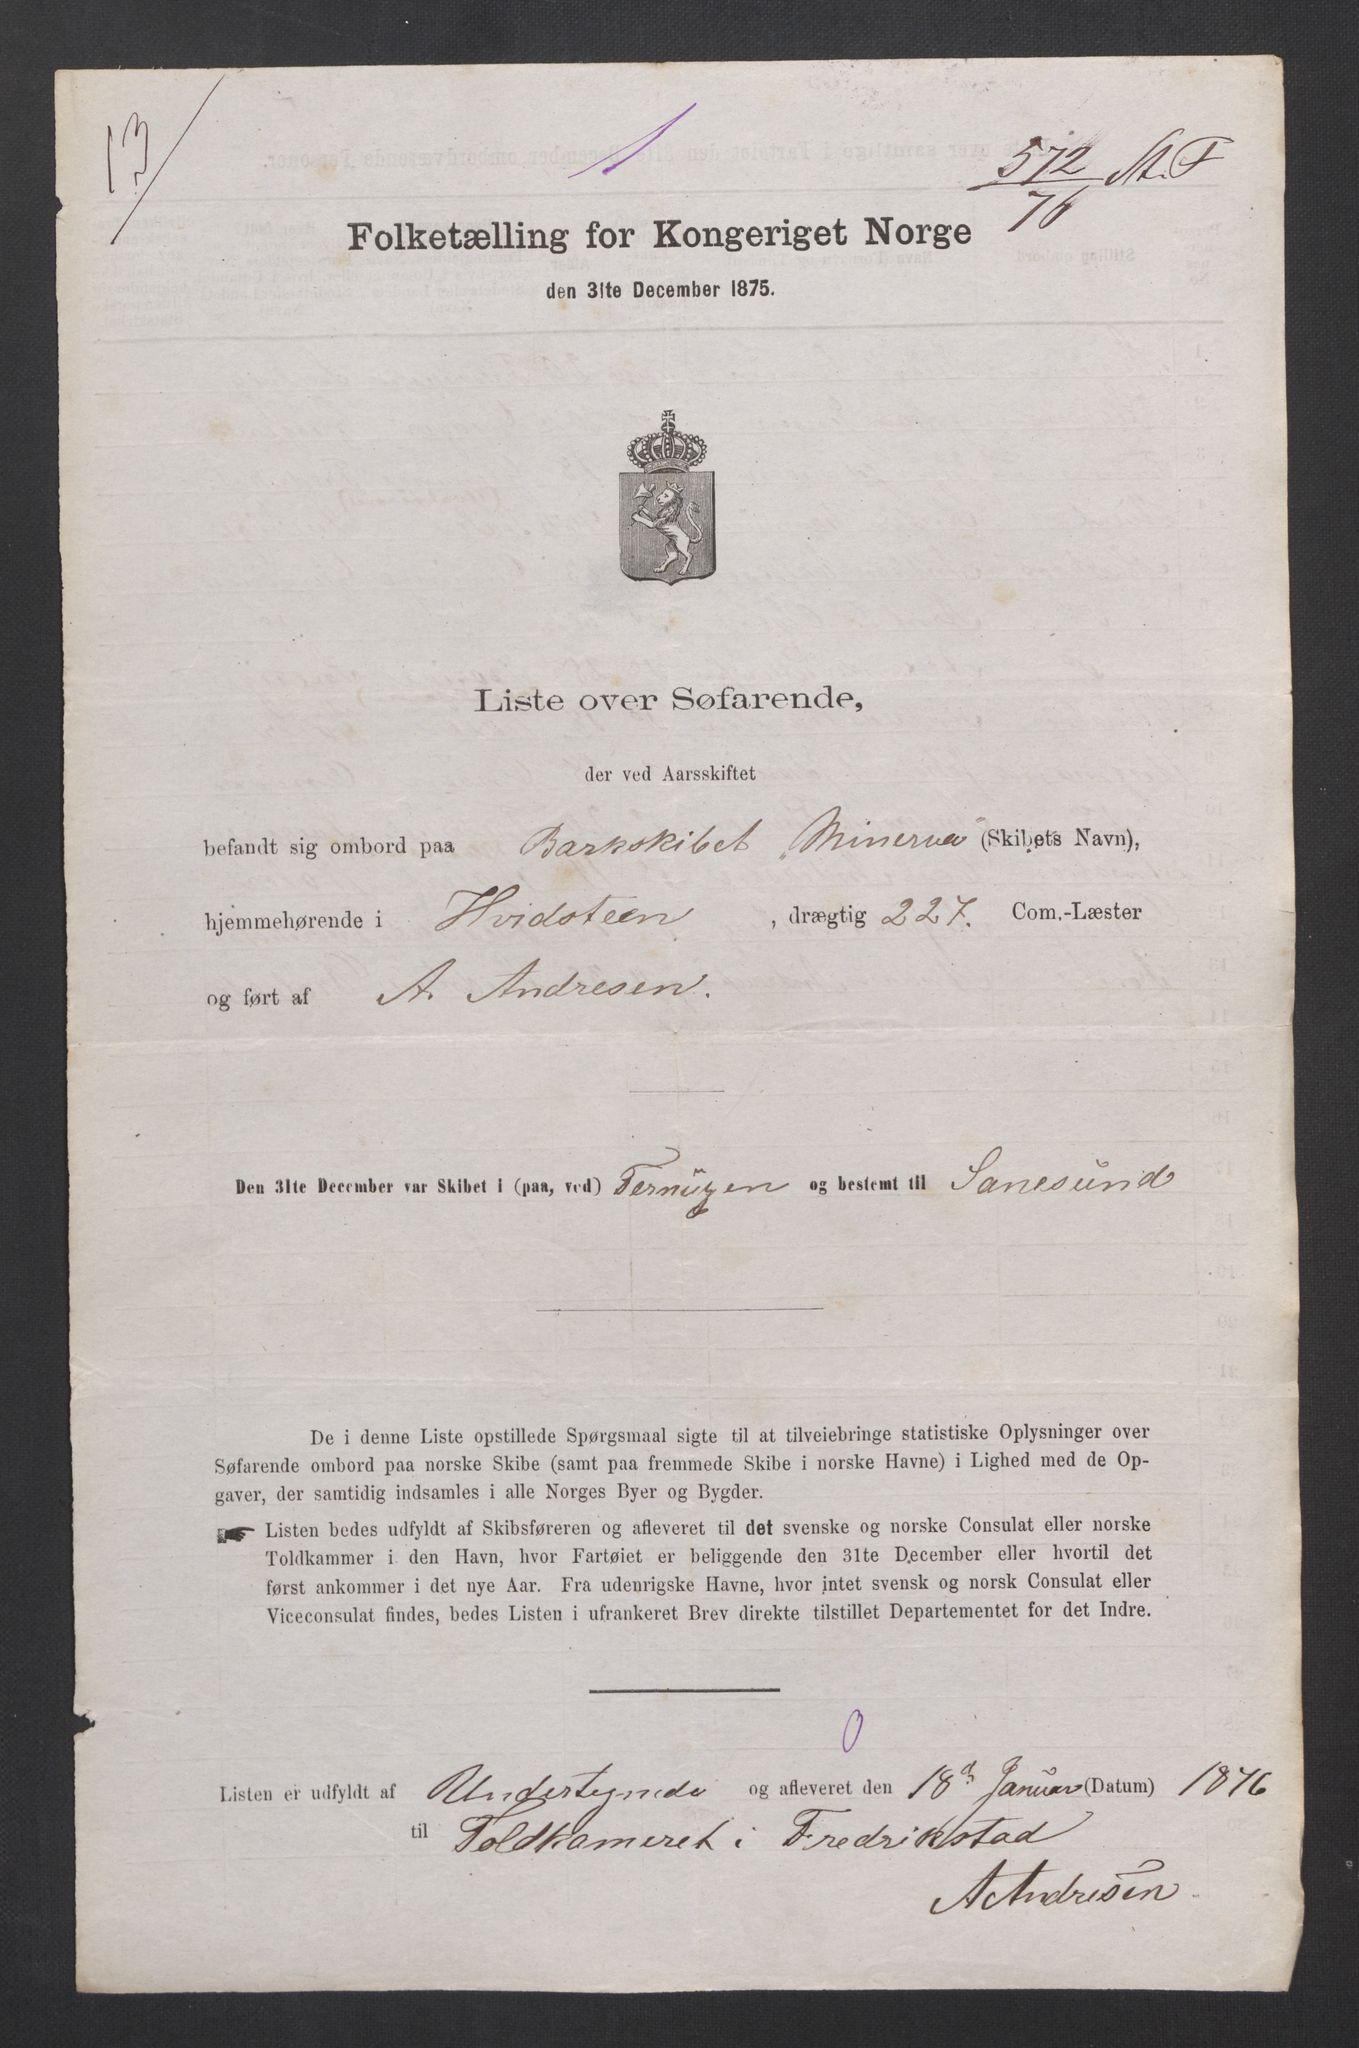 13
1
572 / 76 St. F
Folketælling for Kongeriget Norge
den 31te December 1875.
Liste over Søfarende,
der ved Aarsskiftet
befandt sig ombord paa Barkskibet „Minerva" (Skibets Navn),
hjemmehørende i Hvidsteen, drægtig 227. Com.-Læster
og ført af A. Andresen.
Den 31te December var Skibet i (paa, ved) Ternüzen og bestemt til Sanesund
De i denne Liste opstillede Spørgsmaal sigte til at tilveiebringe statistiske Oplysninger over
Søfarende ombord paa norske Skibe (samt paa fremmede Skibe i norske Havne) i Lighed med de Op-
gaver, der samtidig indsamles i alle Norges Byer og Bygder.
Listen bedes udfyldt af Skibsføreren og afleveret til det svenske og norske Consulat eller norske
Toldkammer i den Havn, hvor Fartøiet er beliggende den 31te December eller hvortil det
først ankommer i det nye Aar. Fra udenrigske Havne, hvor intet svensk og norsk Consulat eller
Viceconsulat findes, bedes Listen i ufrankeret Brev direkte tilstillet Departementet for det Indre.
0
Listen er udfyldt af Undertegnede og afleveret den 18d Januar (Datum) 1876
til Toldkameret i Fredrikstad
A Andresen